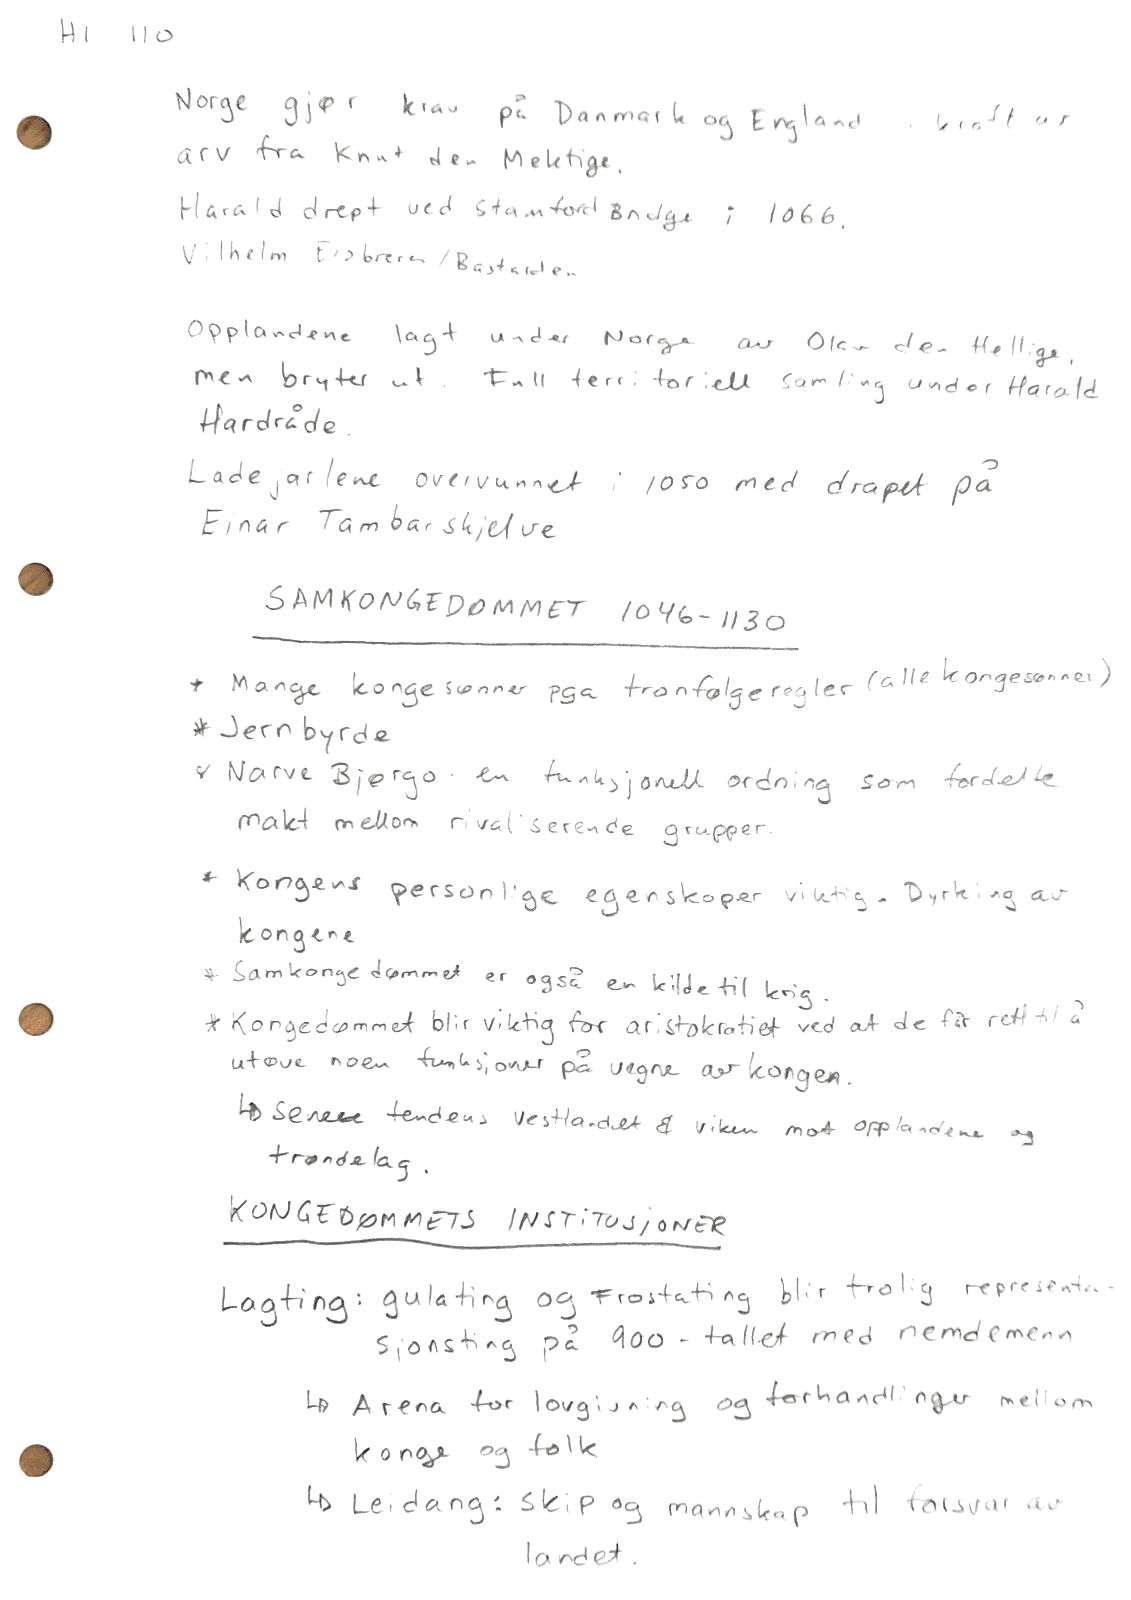 HI 110
Norge gjør krav på Danmark og England i kraft av
arv fra Knut den Mektige.
Harald drept ved Stamford Bridge i 1066.
Vilhelm Erobreren / Bastarden
Opplandene lagt under Norge av Olav den Hellige,
men bryter ut. Full territoriell samling under Harald
Hardråde.
Ladejarlene overvunnet i 1050 med drapet på
Einar Tambarskjelve
SAMKONGEDØMMET 1046-1130
* Mange kongesønner pga tronfølgeregler (alle kongesønner)
* Jernbyrde
* Narve Bjørgo: en funksjonell ordning som fordelte
makt mellom rivaliserende grupper.
* Kongens personlige egenskaper viktig. Dyrking av
kongene
* Samkongedømmet er også en kilde til krig.
* Kongedømmet blir viktig for aristokratiet ved at de får rett til å
utøve noen funksjoner på vegne av kongen.
↳ Senere tendens Vestlandet & Viken mot opplandene og
trøndelag.
KONGEDØMMETS INSTITUSJONER
Lagting: gulating og Frostating blir trolig representa-
sjonsting på 900-tallet med nemdemenn
↳ Arena for lovgivning og forhandlinger mellom
konge og folk
↳ Leidang: skip og mannskap til forsvar av
landet.